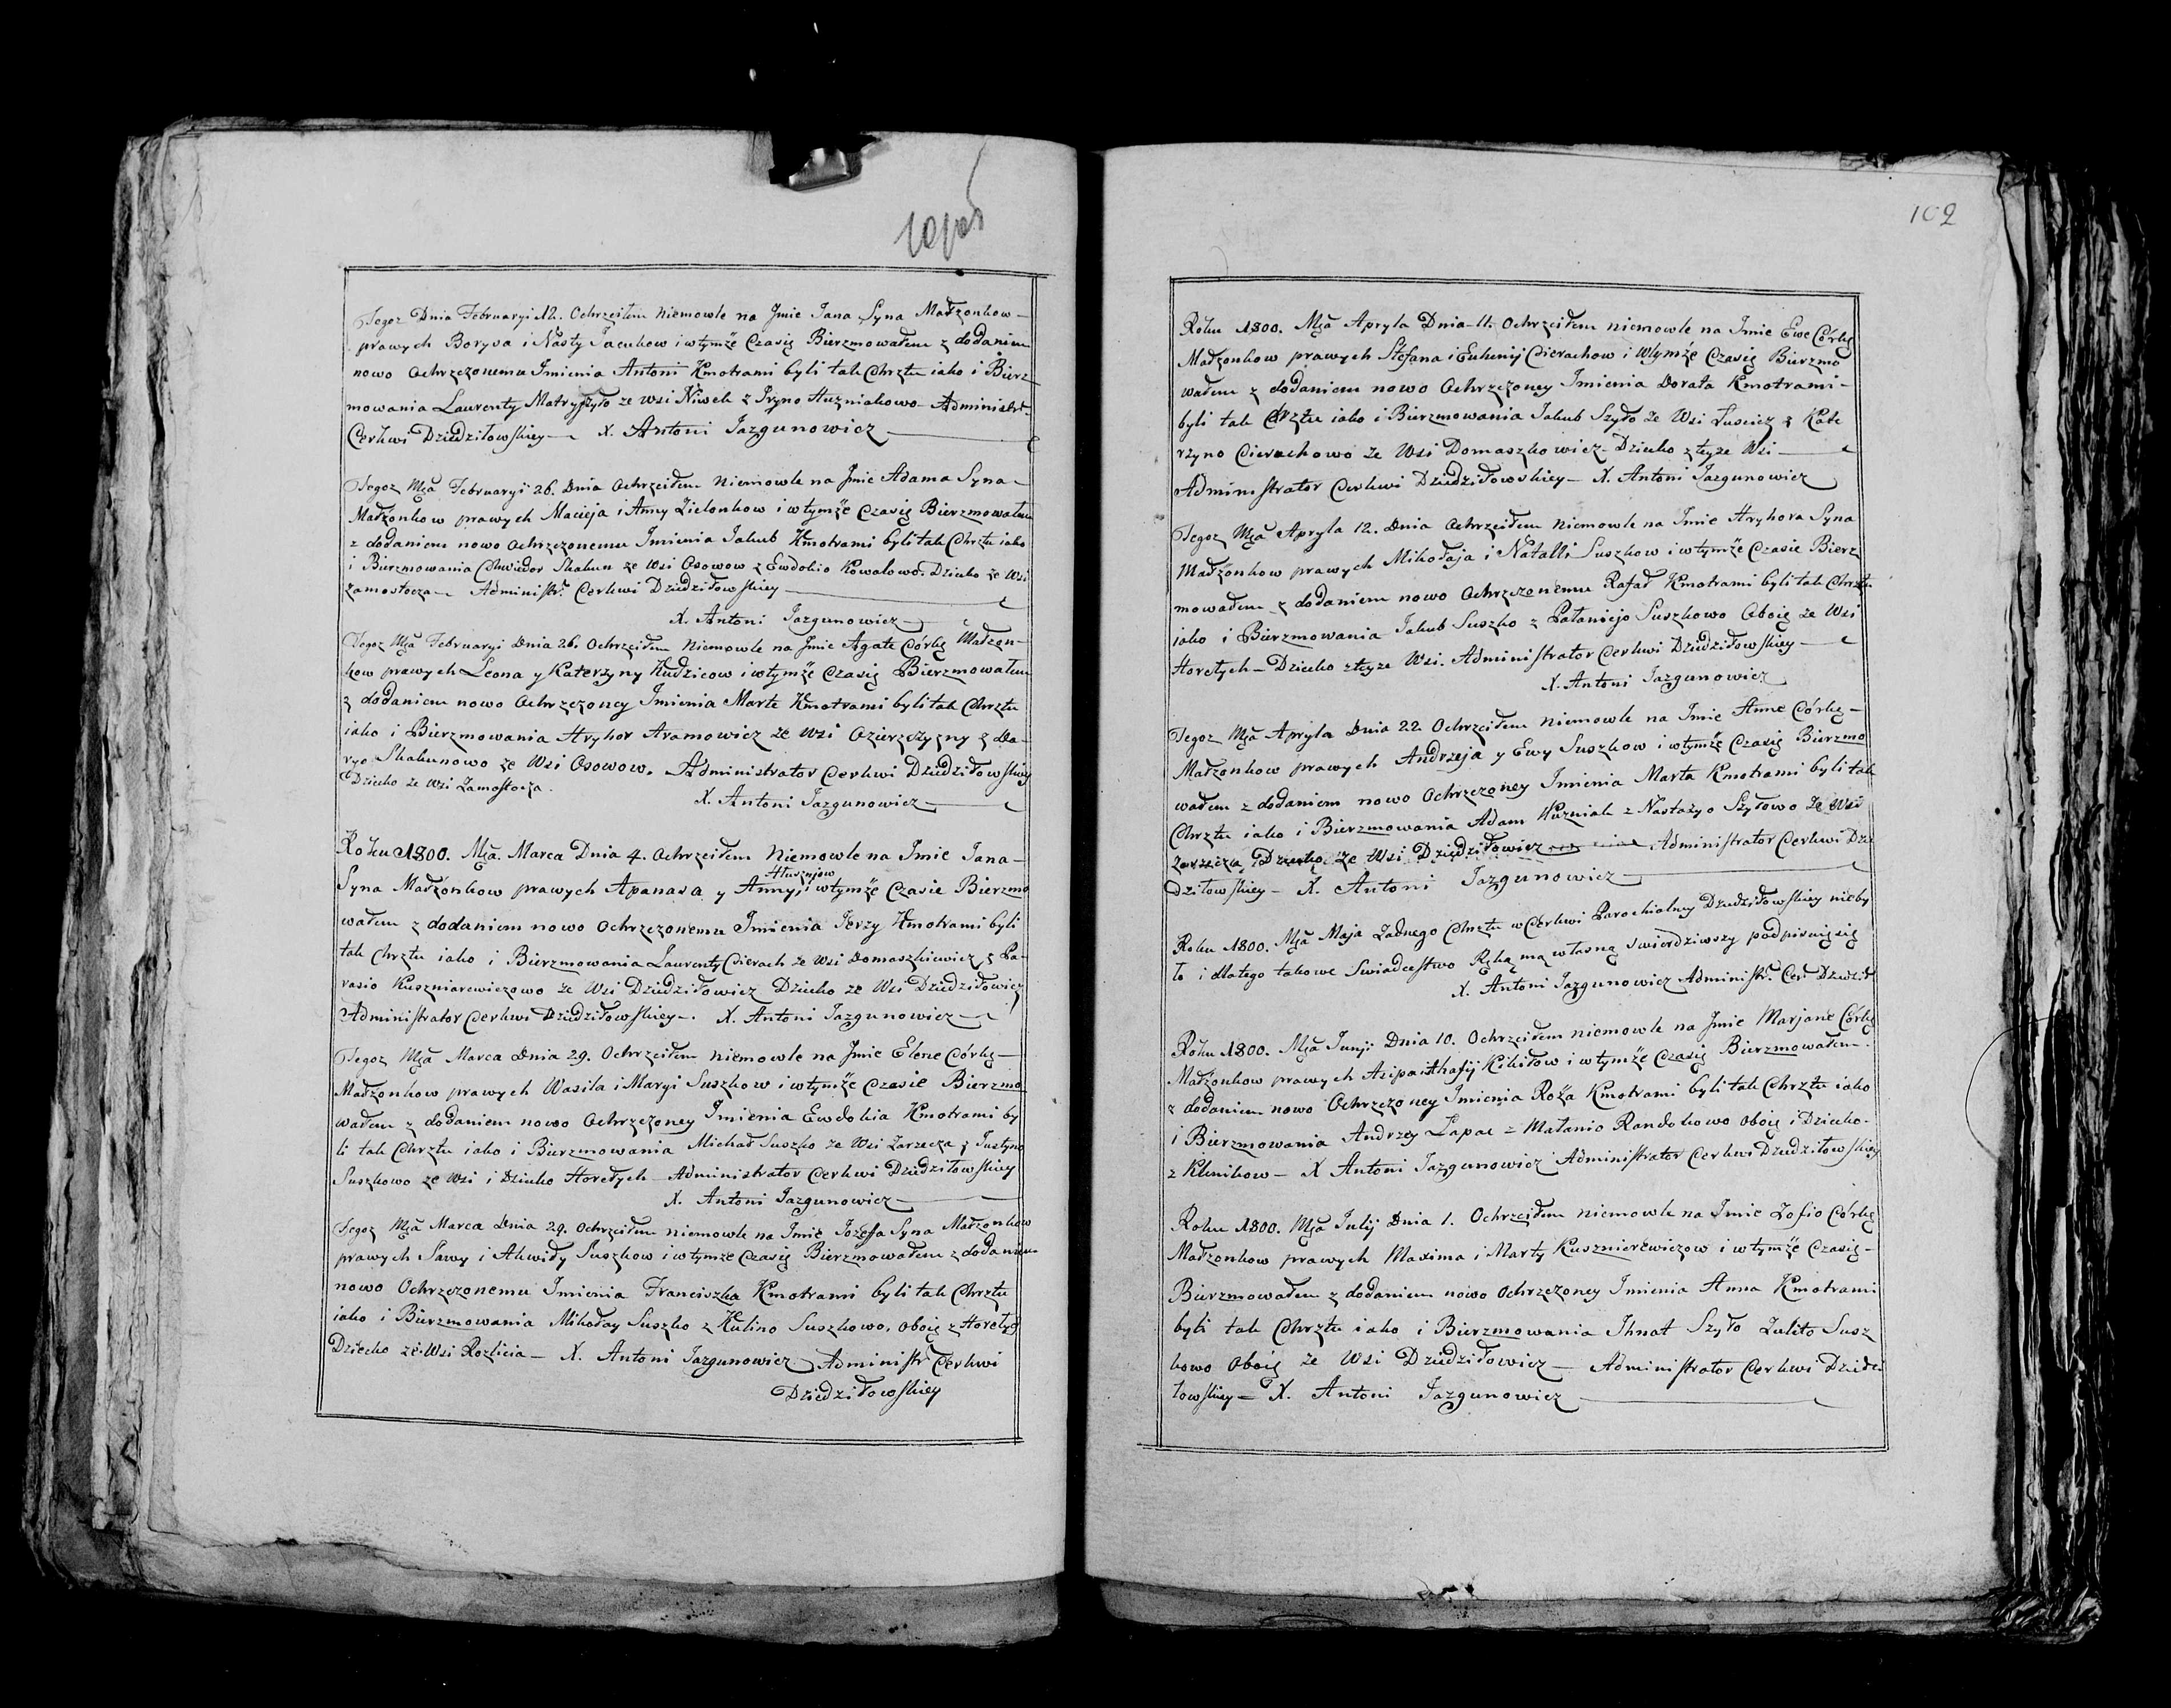 Tegoz Dnia Februaryi 12. Ochrzciłem Niemowle na Jmie Jana Syna Małzonkow
prawych Borysa i Nasty Jacukow i wtymże Czasię Bierzmowałem z dodaniem
nowo Ochrzczonemu Jmienia Antoni Kmotrami byli tak Chrztu iako i Bierz
mowania Laurenty ze wsi Niwek z Jryno Huzniakowo Administr
Cerkwi Dziedziłowskiey X. Antoni Jazgunowicz
Tegoz Mcą Februaryi 26. Dnia Ochrzciłem Niemowle na Jmie Adama Syna
Małzonkow prawych Macieja i Anny Zielonkow i wtymże Czasię Bierzmowałem
z dodaniem nowo Ochrzczonemu Jmienia Jakub Kmotrami byli tak Chrztu iako
i Bierzmowania Chwiedor Skakun ze Wsi Osowow z Ewdokio Kowalowo. Dziecko ze Wsi
Zamostocza Administr. Cerkwi Dziedziłowskiey
X. Antoni Jazgunowicz
Tegoz Mcą Februaryi Dnia 26. Ochrzciłem Niemowle na Jmie Agate Córkę Małzon-
kow prawych Leona y Katerzyny Kudzicow i wtymże Czasię Bierzmowałem
z dodaniem nowo Ochrzczoney Jmienia Marte Kmotrami byli tak Chrztu
iako i Bierzmowania Hryhor Aramowicz ze Wsi Ozierzczyzny z Da-
ryo Skakunowo ze Wsi Osowow. Administrator Cerkwi Dziedziłowskiey
Dziecko ze Wsi Zamostocza.
X. Antoni Jazgunowicz
Roku 1800. Mcą. Marca Dnia 4. Ochrzciłem Niemowle na Jmie Jana
Syna Małżonkow prawych Apanasa y Anny i wtymże Czasie Bierzmo
wałem z dodaniem nowo Ochrzczonemu Jmienia Jerzy Kmotrami byli
tak Chrztu iako i Bierzmowania Laurenty Cierach ze Wsi Domaszkiewicz z Pa-
rasio Kuszniarewiczowo ze Wsi Dziedziłowicz Dziecko ze Wsi Dziedziłowicz
Administrator Cerkwi Dziedziłowskiey. X. Antoni Jazgunowicz
Tegoz Mcą Marca Dnia 29. Ochrzciłem Niemowle na Jmie Elene Córkę
Małżonkow prawych Wasila i Maryi Suszkow i wtymże Czasie Bierzmo
wałem z dodaniem nowo Ochrzczoney Jmienia Ewdokia Kmotrami by
li tak Chrztu iako i Bierzmowania Michał Suszko ze Wsi Zarzecza z Justyno
Suszkowo ze Wsi i Dziecko Horełych Administrator Cerkwi Dziedziłowskiey
X. Antoni Jazgunowicz
Tegoz Mcą Marca Dnia 29. Ochrzciłem niemowle na Jmie Jozeffa Syna Małzonkow
prawych Sawy i Suszkow i wtymże Czasię Bierzmowałem z dodaniem
nowo Ochrzczonemu Jmienia Franciszka Kmotrami byli tak Chrztu
iako i Bierzmowania Mikołay Suszko z Kulino Suszkowo, oboię z Horełych
Dziecko ze Wsi X. Antoni Jazgunowicz Administr Cerkwi
Dziedziłowskiey
102
Roku 1800. Mcą Apryla Dnia 11. Ochrzciłem niemowle na Jmie Ewe Córkę
Małzonkow prawych Stefana i Eukenij Cierachow i Wtymże Czasię Bierzmo
wałem z dodaniem nowo Ochrzczoney Jmienia Dorata Kmotrami
byli tak Chrztu iako i Bierzmowania Jakub Szyło ze Wsi z Kate
rzyno Cierachowo ze Wsi Domaszkowicz. Dziecko z teyze Wsi
Administrator Cerkwi Dziedziłowskiey X. Antoni Jazgunowicz
Tegoz Mcą Apryla 12. Dnia Ochrzciłem Niemowle na Jmie Hryhora Syna
Małżonkow prawych Mikołaja i Natalli Suszkow i wtymże Czasie Bierz
mowałem z dodaniem nowo Ochrzczonemu Rafał Kmotrami byli tak Chrztu
iako i Bierzmowania Jakub Suszko z Suszkowo Oboię ze Wsi
Horełych Dziecko z teyze Wsi. Administrator Cerkwi Dziedziłowskiey
X. Antoni Jazgunowicz
Tegoz Mcą Apryla Dnia 22. Ochrzciłem Niemowle na Jmie Anne Córkę
Małzonkow prawych Andrzeja y Ewy Suszkow i wtymże Czasię Bierzmo
wałem z dodaniem nowo Ochrzczoney Jmienia Marta Kmotrami byli tak
Chrztu iako i Bierzmowania Adam Kuzniak z Nastazyo Szyłowo ze Wsi
Dziecko ze Wsi Dziedziłowicz Administrator Cerkwi Dzie
dziłowskiey X. Antoni Jazgunowicz
Roku 1800. Mcą Maja Żadnego Chrztu w Cerkwi Parochialney Dziedziłowskiey nieby
ło i dlatego takowe Swiadectwo Ręką mą własną stwierdziwszy podpisuięsię
X. Antoni Jazgunowicz Administr. Cer Dziedził
Roku 1800. Mcą Junij Dnia 10. Ochrzciłem niemowle na Jmie Marjane Córkę
Małżonkow prawych i wtymże Czasię Bierzmowałem
z dodaniem nowo Ochrzczoney Jmienia Roża Kmotrami byli tak Chrztu iako
i Bierzmowania Andrzey Łapac z Małanio oboię i Dziecko
z Klenikow X Antoni Jazgunowicz Administrator Cerkwi Dziedziłowskiey
Roku 1800. Mcą Julij Dnia 1. Ochrzciłem niemowle na Jmie Zofio Córkę
Małzonkow prawych Maxima i Marty Kusznierewiczow i wtymże Czasię
Bierzmowałem z dodaniem nowo Ochrzczoney Jmienia Anna Kmotrami
byli tak Chrztu iako i Bierzmowania Jhnat Szyło Susz
kowo Oboię ze Wsi Dziedziłowicz Administrator Cerkwi Dziedzi
łowskiey X. Antoni Jazgunowicz